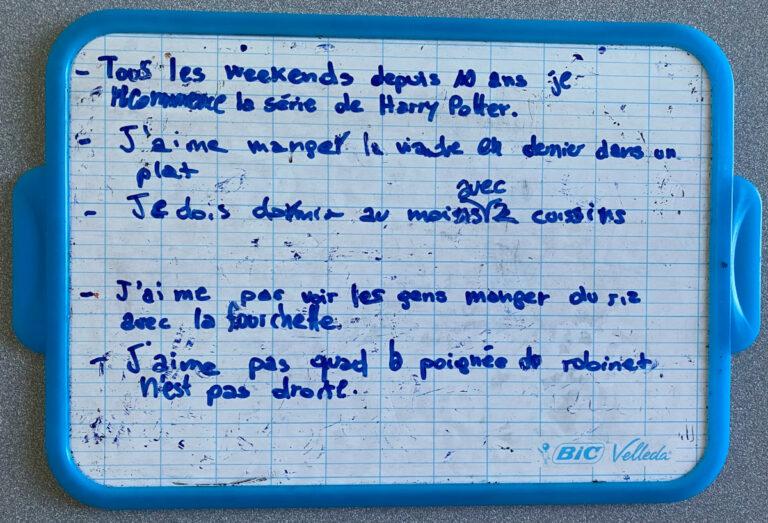 - Tous les weekends depuis 10 ans je
recommence la série de Harry Potter.
- J'aime manger la viande en dernier dans un
plat
avec
- Je dois dormir au moins 2 coussins
- J'aime pas voir les gens manger du riz
avec la fourchette.
- J'aime pas quad la poignée de robinet
n'est pas droite.
BIC Velleda